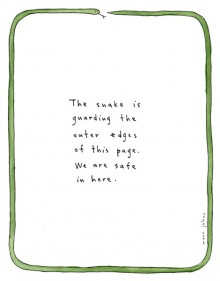 The snake is
guarding the
outer edges
of this page.
We are safe
in here.
marc johns